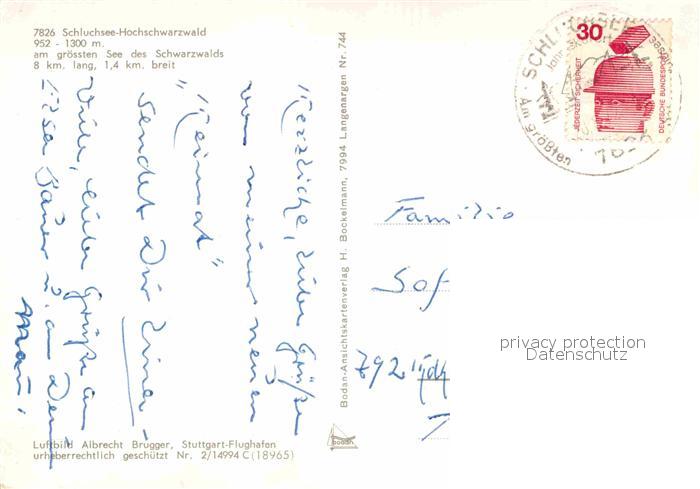 7826 Schluchsee-Hochschwarzwald
952 - 1300 m.
am grössten See des Schwarzwalds
8 km. lang, 1,4 km. breit
Herzliche, liebe Grüße
von meiner neuen
"Heimat"
sendet Dir Eurer
Viele, liebe Grüße an
u. an Deinen
Mann.
Luftbild Albrecht Brugger, Stuttgart-Flughafen
urheberrechtlich geschützt Nr. 2/14994 C (18965)
Bodan-Ansichtskartenverlag H. Bockelmann, 7994 Langenargen Nr. 744
bodan
SCHLUCHSEE
Am größten
30
JEDERZEIT SICHERHEIT
DEUTSCHE BUNDESPOST
Familie
792
privacy protection
Datenschutz